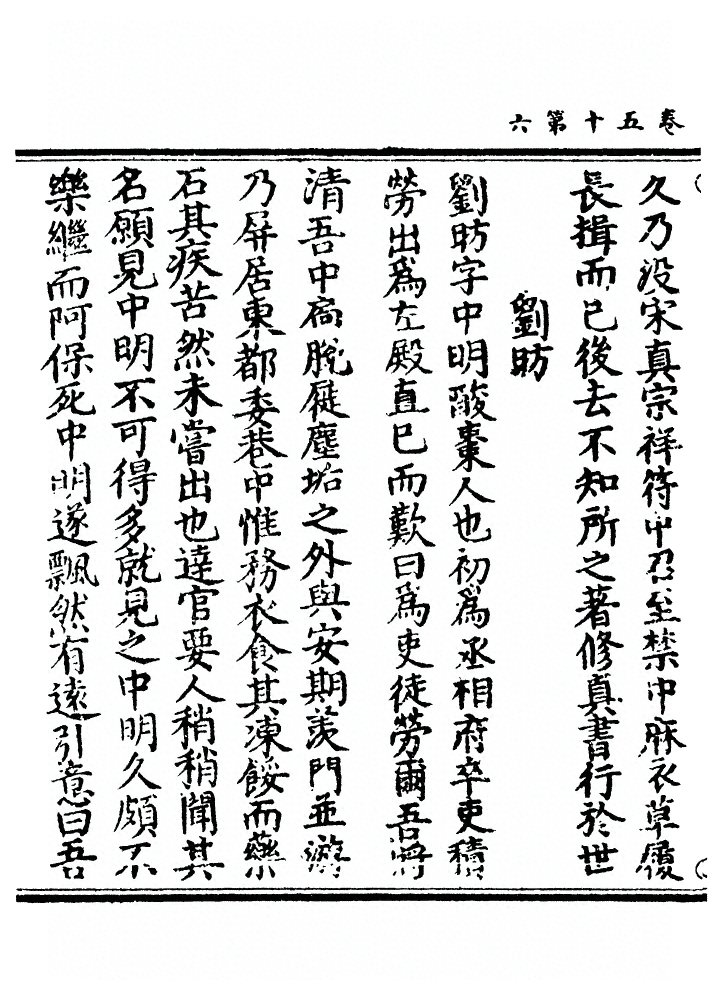 卷五十第六
久乃没宋真宗祥符中召至禁中麻衣草履
長揖而已後去不知所之著修真書行於世
劉昉
劉昉字中明酸棗人也初為丞相府卒吏積
勞出為左殿直已而歎曰為吏徒勞爾吾將
清吾中扃脫屣塵垢之外與安期羨門並游
乃屏居東都委巷中惟務衣食其凍餒而藥
石其疾苦然未嘗出也達官要人稍稍聞其
名願見中明不可得多就見之中明久頗不
樂繼而阿保死中明遂飄然有遠引意曰吾